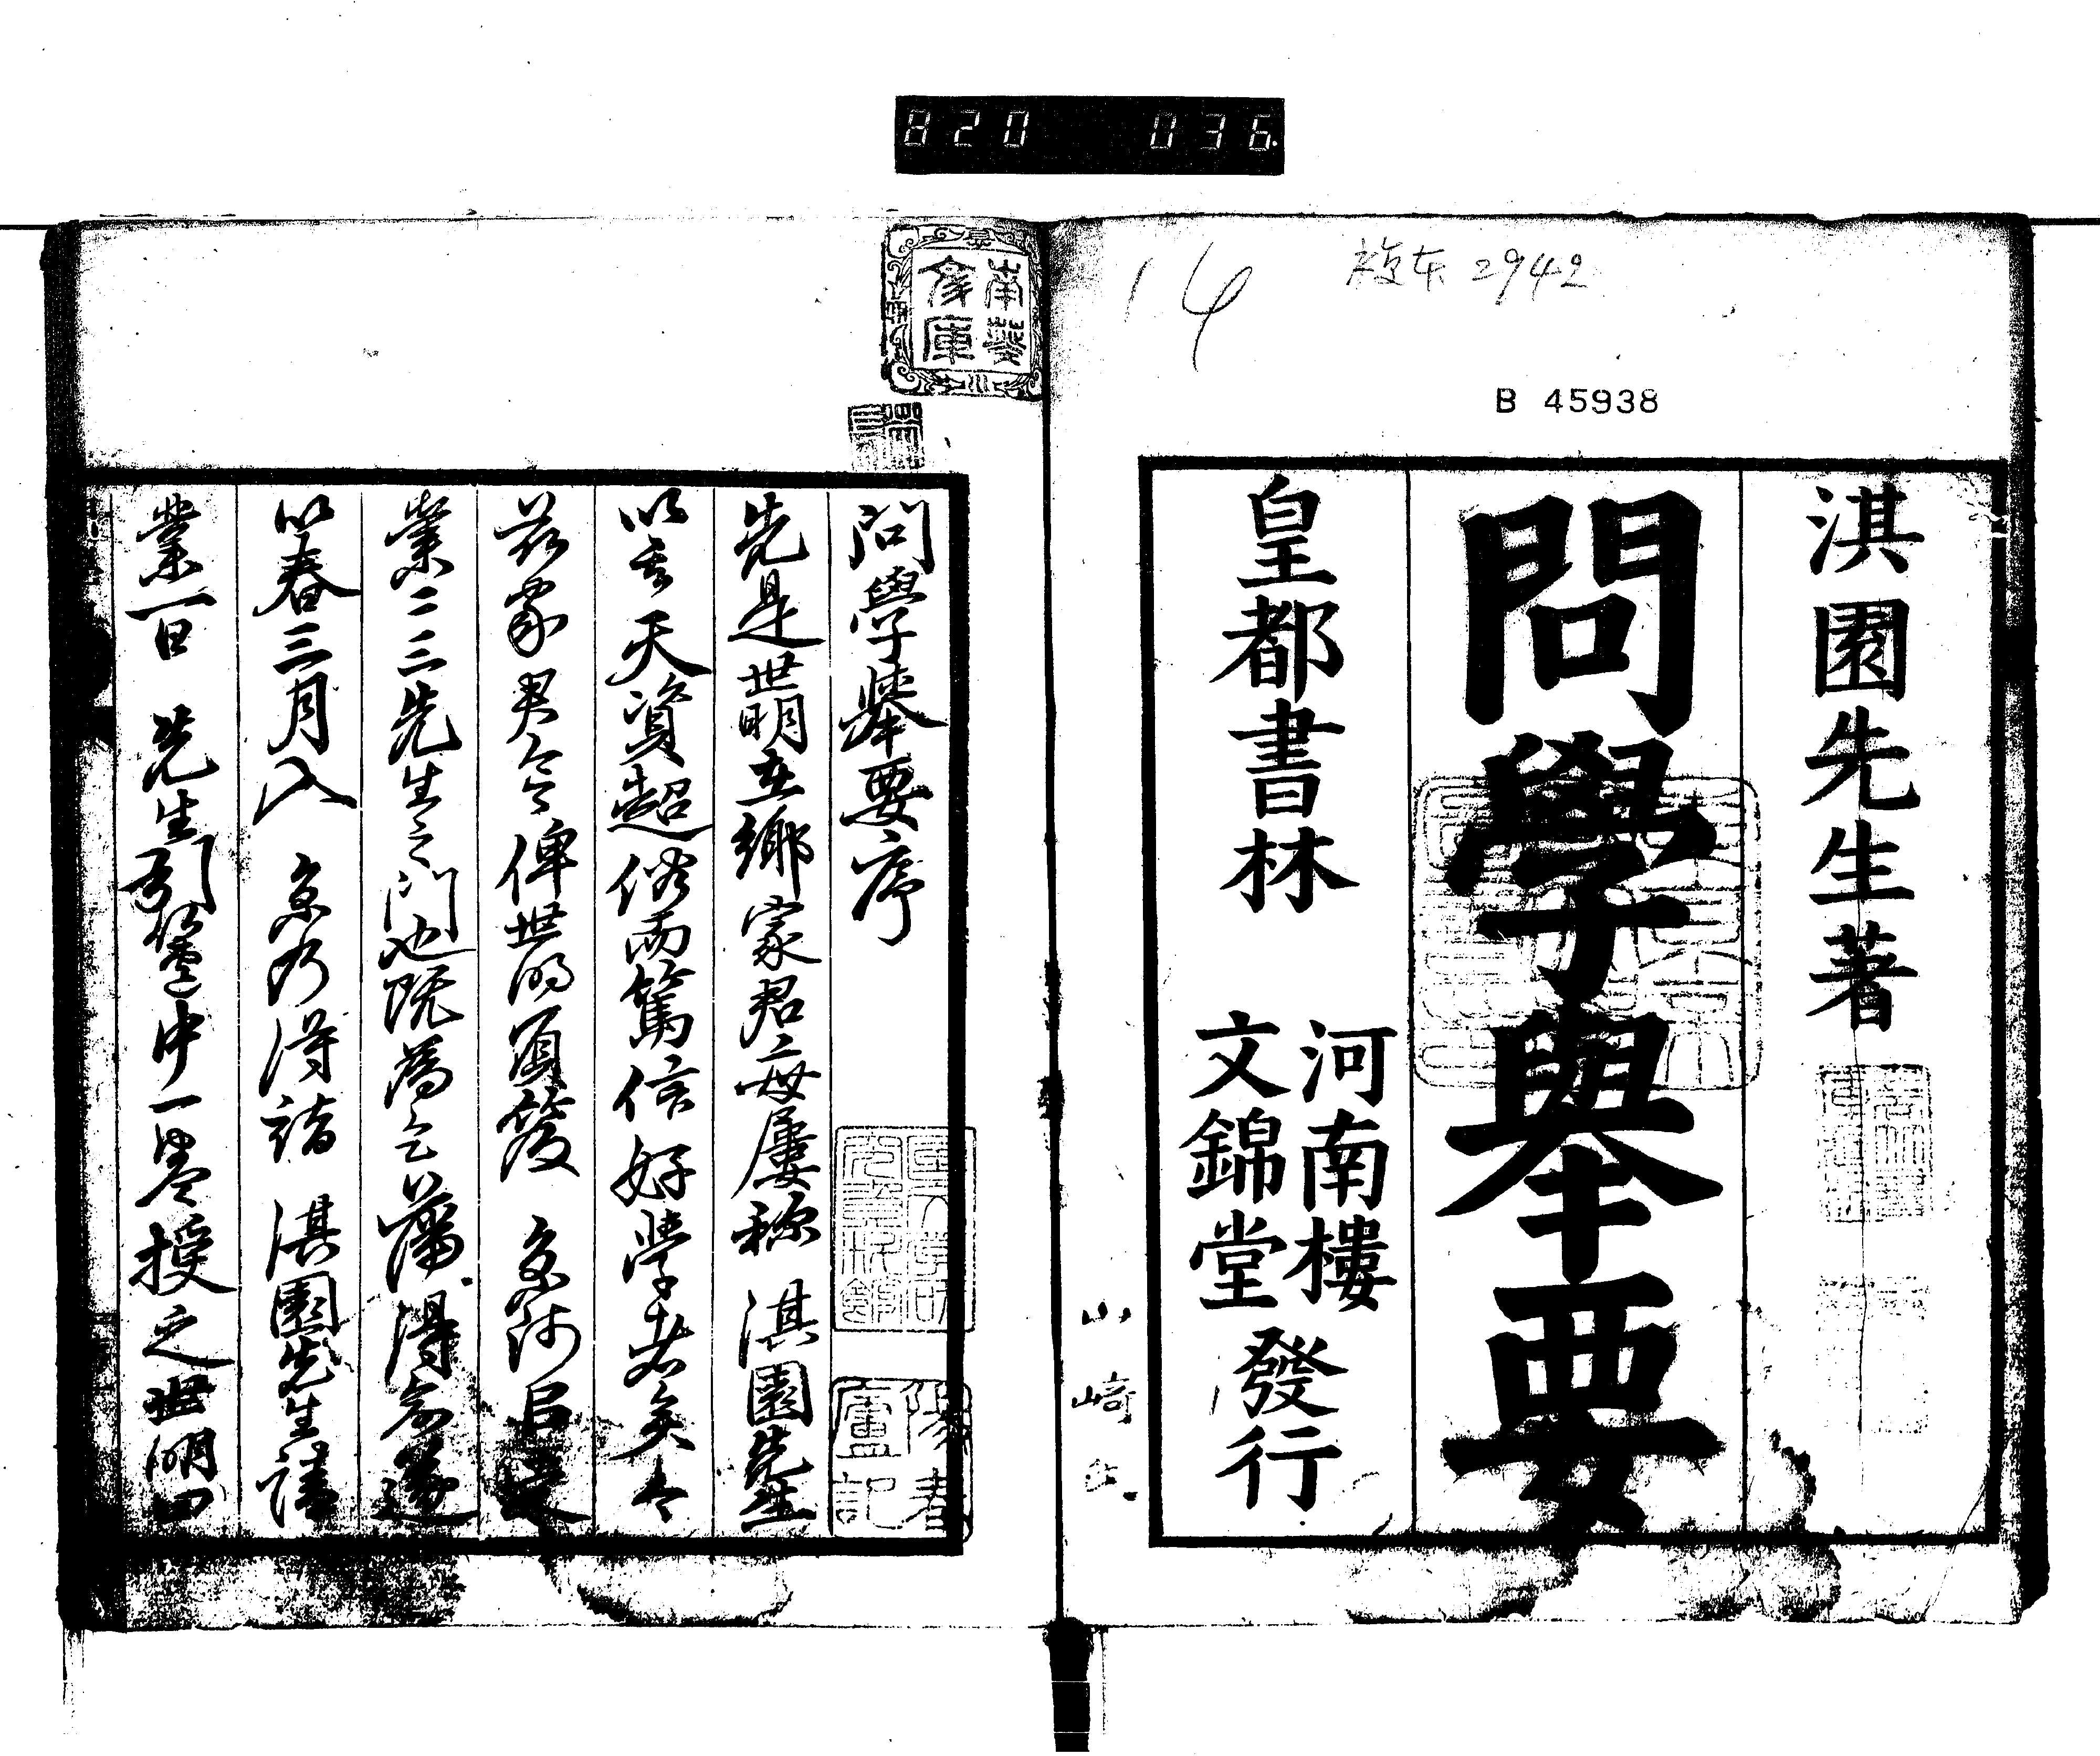 820 036
複本 2942
14
B 45938
淇園先生著
問學舉要
皇都書林
河南樓
文錦堂
發行
山崎
南葵
文庫
陽春
廬記
問學舉要序
先是世明在鄉家君每屢称 淇園先生
以其天資超俗而篤信好學者矣今
茲家君令俾世明負笈 京師
業二三先生之門也既為乞藩得命遂
以春三月入 京乃得詣 淇園先生請
業一日 先生引篋中一卷授之世明曰